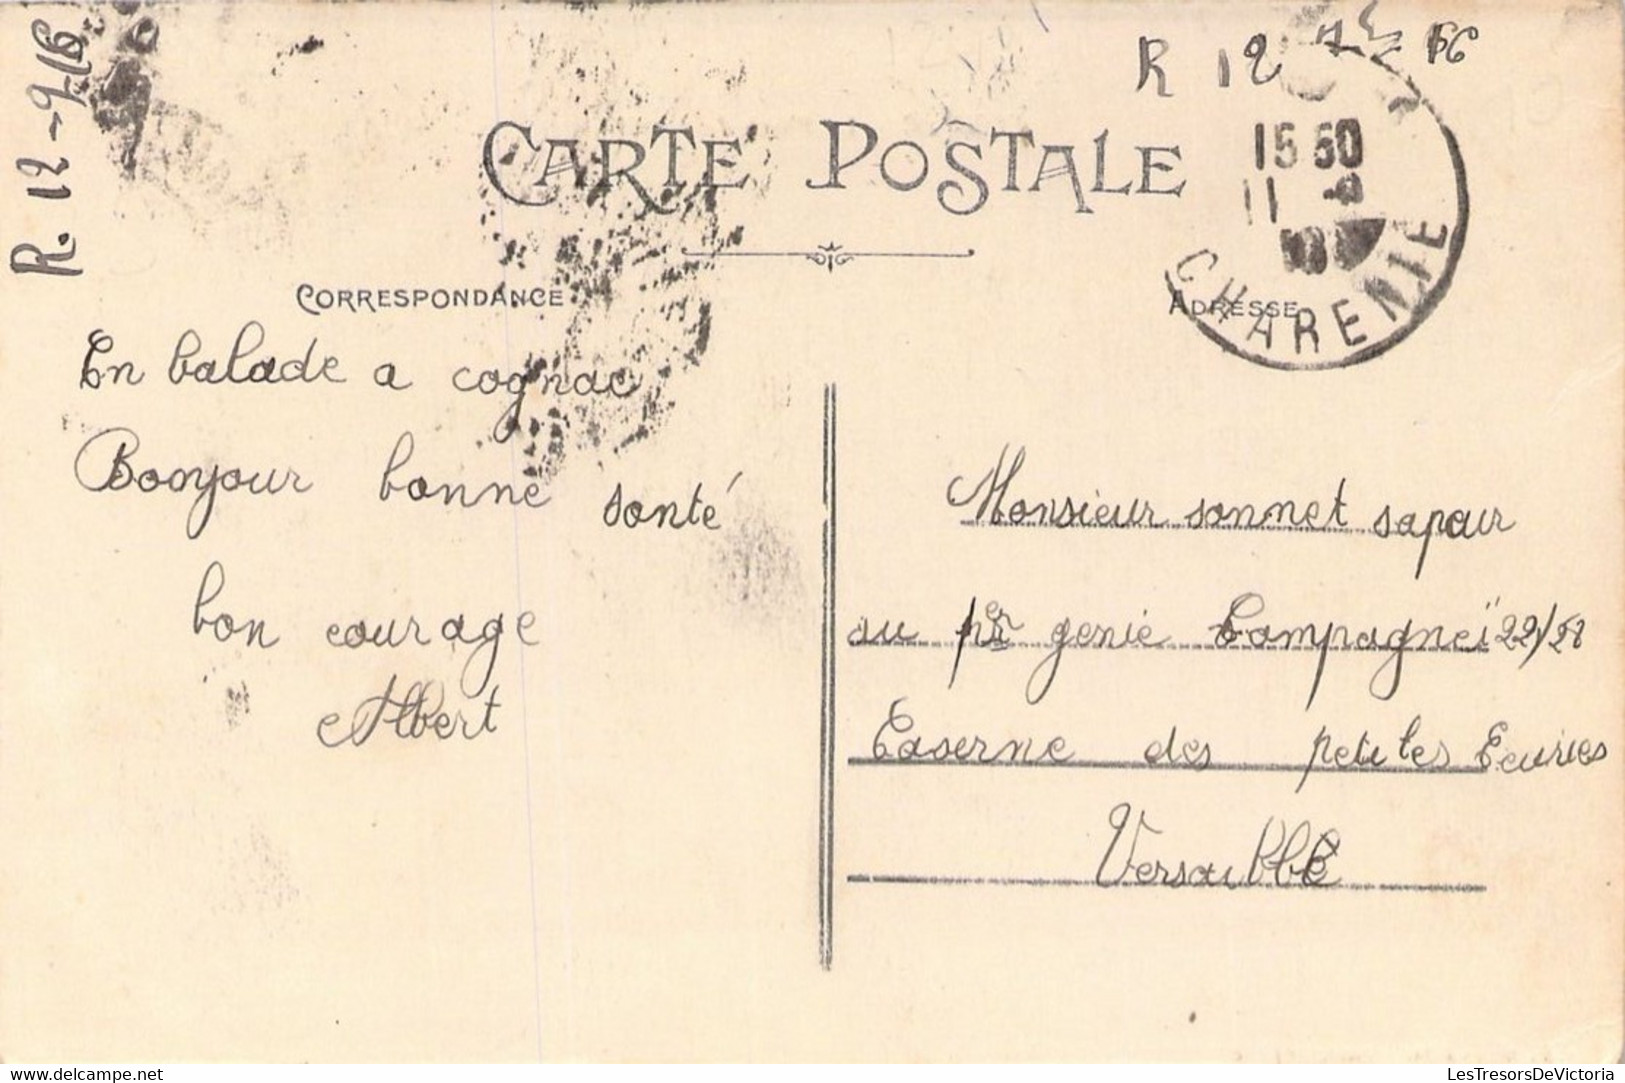 R. 12-9-16
R 12
CARTE POSTALE
15 50
11
CHARENTE
CORRESPONDANCE
ADRESSE
En balade a cognac
Bonjour bonne santé
bon courage
Albert
Monsieur sonnet sapeur
au 1er genie Compagnei 22/28
Caserne des petites Ecuries
Versaille
LesTresorsDeVictoria